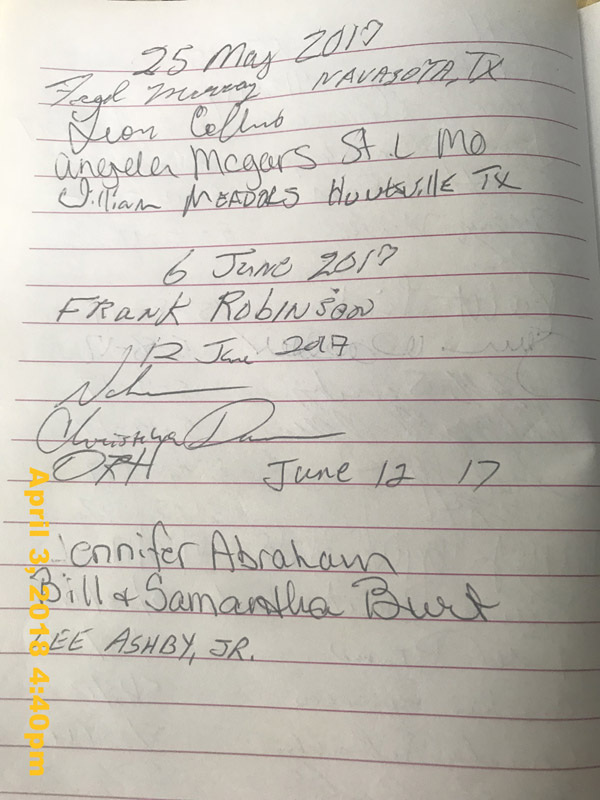 25 May 2017
Murray NAVASOTA, TX
Leon Collins
Angela Mcgars St. L Mo
William MEADORS HUNTSVILLE TX
6 June 2017
FRANK ROBINSON
12 June 2017
June 12 17
Jennifer Abraham
Bill + Samantha Burt
LEE ASHBY, JR.
April 3, 2018 4:40pm